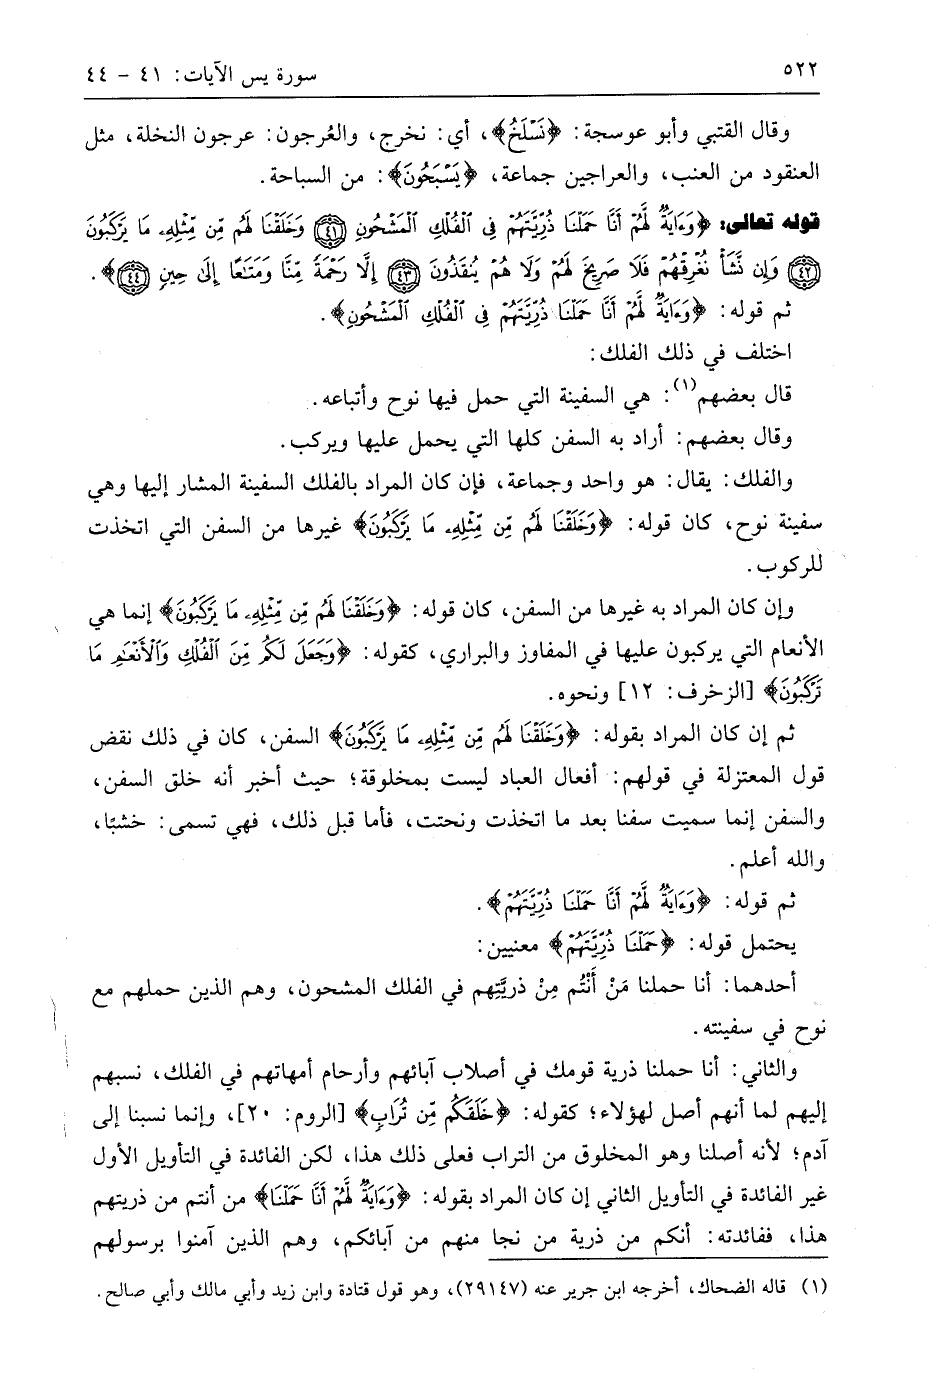 ٥٢٢
سورة يس الآيات: ٤١ - ٤٤
وقال القتبي وأبو عوسجة: ﴿نَسْلَخُ﴾، أي: نخرج، والعُرجون: عرجون النخلة، مثل
العنقود من العنب، والعراجين جماعة، ﴿يَسْبَحُونَ﴾: من السباحة.
قوله تعالى: ﴿وَءَايَةٌ لَّهُمْ أَنَّا حَمَلْنَا ذُرِّيَّتَهُمْ فِى ٱلْفُلْكِ ٱلْمَشْحُونِ ﴿٤١﴾ وَخَلَقْنَا لَهُم مِّن مِّثْلِهِۦ مَا يَرْكَبُونَ
﴿٤٢﴾ وَإِن نَّشَأْ نُغْرِقْهُمْ فَلَا صَرِيخَ لَهُمْ وَلَا هُمْ يُنقَذُونَ ﴿٤٣﴾ إِلَّا رَحْمَةً مِّنَّا وَمَتَٰعًا إِلَىٰ حِينٍ ﴿٤٤﴾﴾.
ثم قوله: ﴿وَءَايَةٌ لَّهُمْ أَنَّا حَمَلْنَا ذُرِّيَّتَهُمْ فِى ٱلْفُلْكِ ٱلْمَشْحُونِ﴾.
اختلف في ذلك الفلك:
قال بعضهم(١): هي السفينة التي حمل فيها نوح وأتباعه.
وقال بعضهم: أراد به السفن كلها التي يحمل عليها ويركب.
والفلك: يقال: هو واحد وجماعة، فإن كان المراد بالفلك السفينة المشار إليها وهي
سفينة نوح، كان قوله: ﴿وَخَلَقْنَا لَهُم مِّن مِّثْلِهِۦ مَا يَرْكَبُونَ﴾ غيرها من السفن التي اتخذت
للركوب.
وإن كان المراد به غيرها من السفن، كان قوله: ﴿وَخَلَقْنَا لَهُم مِّن مِّثْلِهِۦ مَا يَرْكَبُونَ﴾ إنما هي
الأنعام التي يركبون عليها في المفاوز والبراري، كقوله: ﴿وَجَعَلَ لَكُم مِّنَ ٱلْفُلْكِ وَٱلْأَنْعَٰمِ مَا
تَرْكَبُونَ﴾ [الزخرف: ١٢] ونحوه.
ثم إن كان المراد بقوله: ﴿وَخَلَقْنَا لَهُم مِّن مِّثْلِهِۦ مَا يَرْكَبُونَ﴾ السفن، كان في ذلك نقض
قول المعتزلة في قولهم: أفعال العباد ليست بمخلوقة؛ حيث أخبر أنه خلق السفن،
والسفن إنما سميت سفنا بعد ما اتخذت ونحتت، فأما قبل ذلك، فهي تسمى: خشبًا،
والله أعلم.
ثم قوله: ﴿وَءَايَةٌ لَّهُمْ أَنَّا حَمَلْنَا ذُرِّيَّتَهُمْ﴾.
يحتمل قوله: ﴿حَمَلْنَا ذُرِّيَّتَهُمْ﴾ معنيين:
أحدهما: أنا حملنا مَنْ أَنْتُم مِنْ ذريَّتِهم في الفلك المشحون، وهم الذين حملهم مع
نوح في سفينته.
والثاني: أنا حملنا ذرية قومك في أصلاب آبائهم وأرحام أمهاتهم في الفلك، نسبهم
إليهم لما أنهم أصل لهؤلاء؛ كقوله: ﴿خَلَقَكُم مِّن تُرَابٍ﴾ [الروم: ٢٠]، وإنما نسبنا إلى
آدم؛ لأنه أصلنا وهو المخلوق من التراب فعلى ذلك هذا، لكن الفائدة في التأويل الأول
غير الفائدة في التأويل الثاني إن كان المراد بقوله: ﴿وَءَايَةٌ لَّهُمْ أَنَّا حَمَلْنَا﴾ من أنتم من ذريتهم
هذا، ففائدته: أنكم من ذرية من نجا منهم من آبائكم، وهم الذين آمنوا برسولهم
(١) قاله الضحاك، أخرجه ابن جرير عنه (٢٩١٤٧)، وهو قول قتادة وابن زيد وأبي مالك وأبي صالح.